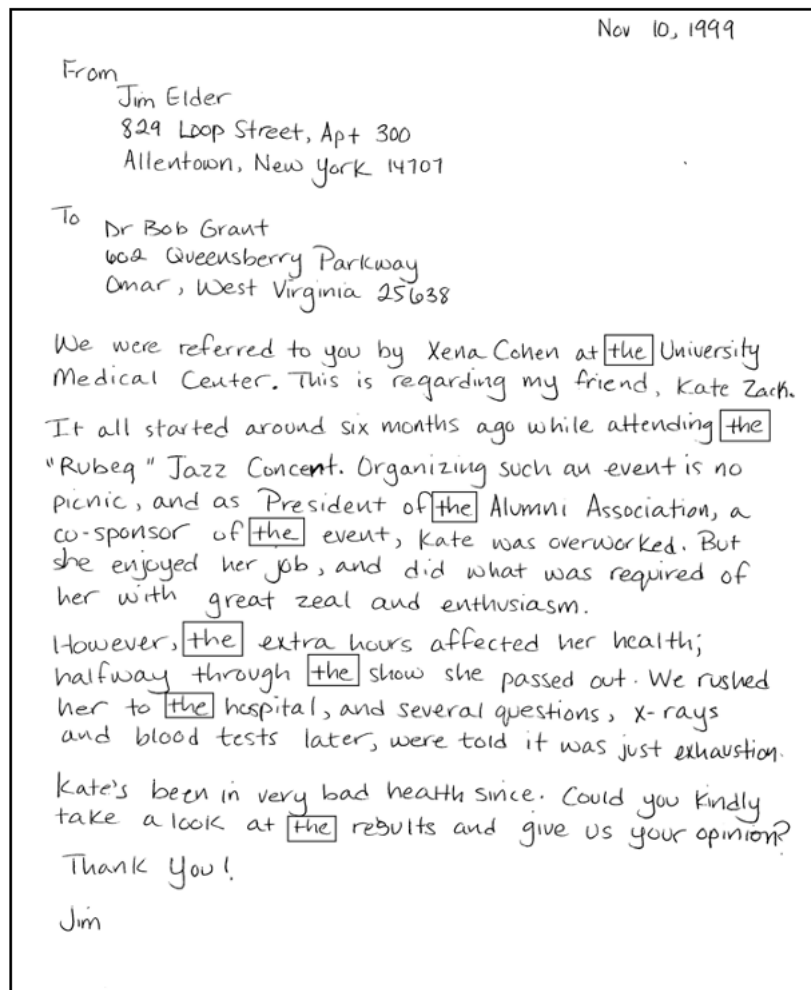 Nov 10, 1999
From
Jim Elder
829 Loop Street, Apt 300
Allentown, New York 14707
To
Dr Bob Grant
602 Queensberry Parkway
Omar, West Virginia 25638
We were referred to you by Xena Cohen at the University
Medical Center. This is regarding my friend, Kate Zack.
It all started around six months ago while attending the
"Rubeq" Jazz Concert. Organizing such an event is no
picnic, and as President of the Alumni Association, a
co-sponsor of the event, Kate was overworked. But
she enjoyed her job, and did what was required of
her with great zeal and enthusiasm.
However, the extra hours affected her health;
halfway through the show she passed out. We rushed
her to the hospital, and several questions, x-rays
and blood tests later, were told it was just exhaustion.
Kate's been in very bad health since. Could you kindly
take a look at the results and give us your opinion?
Thank You!
Jim